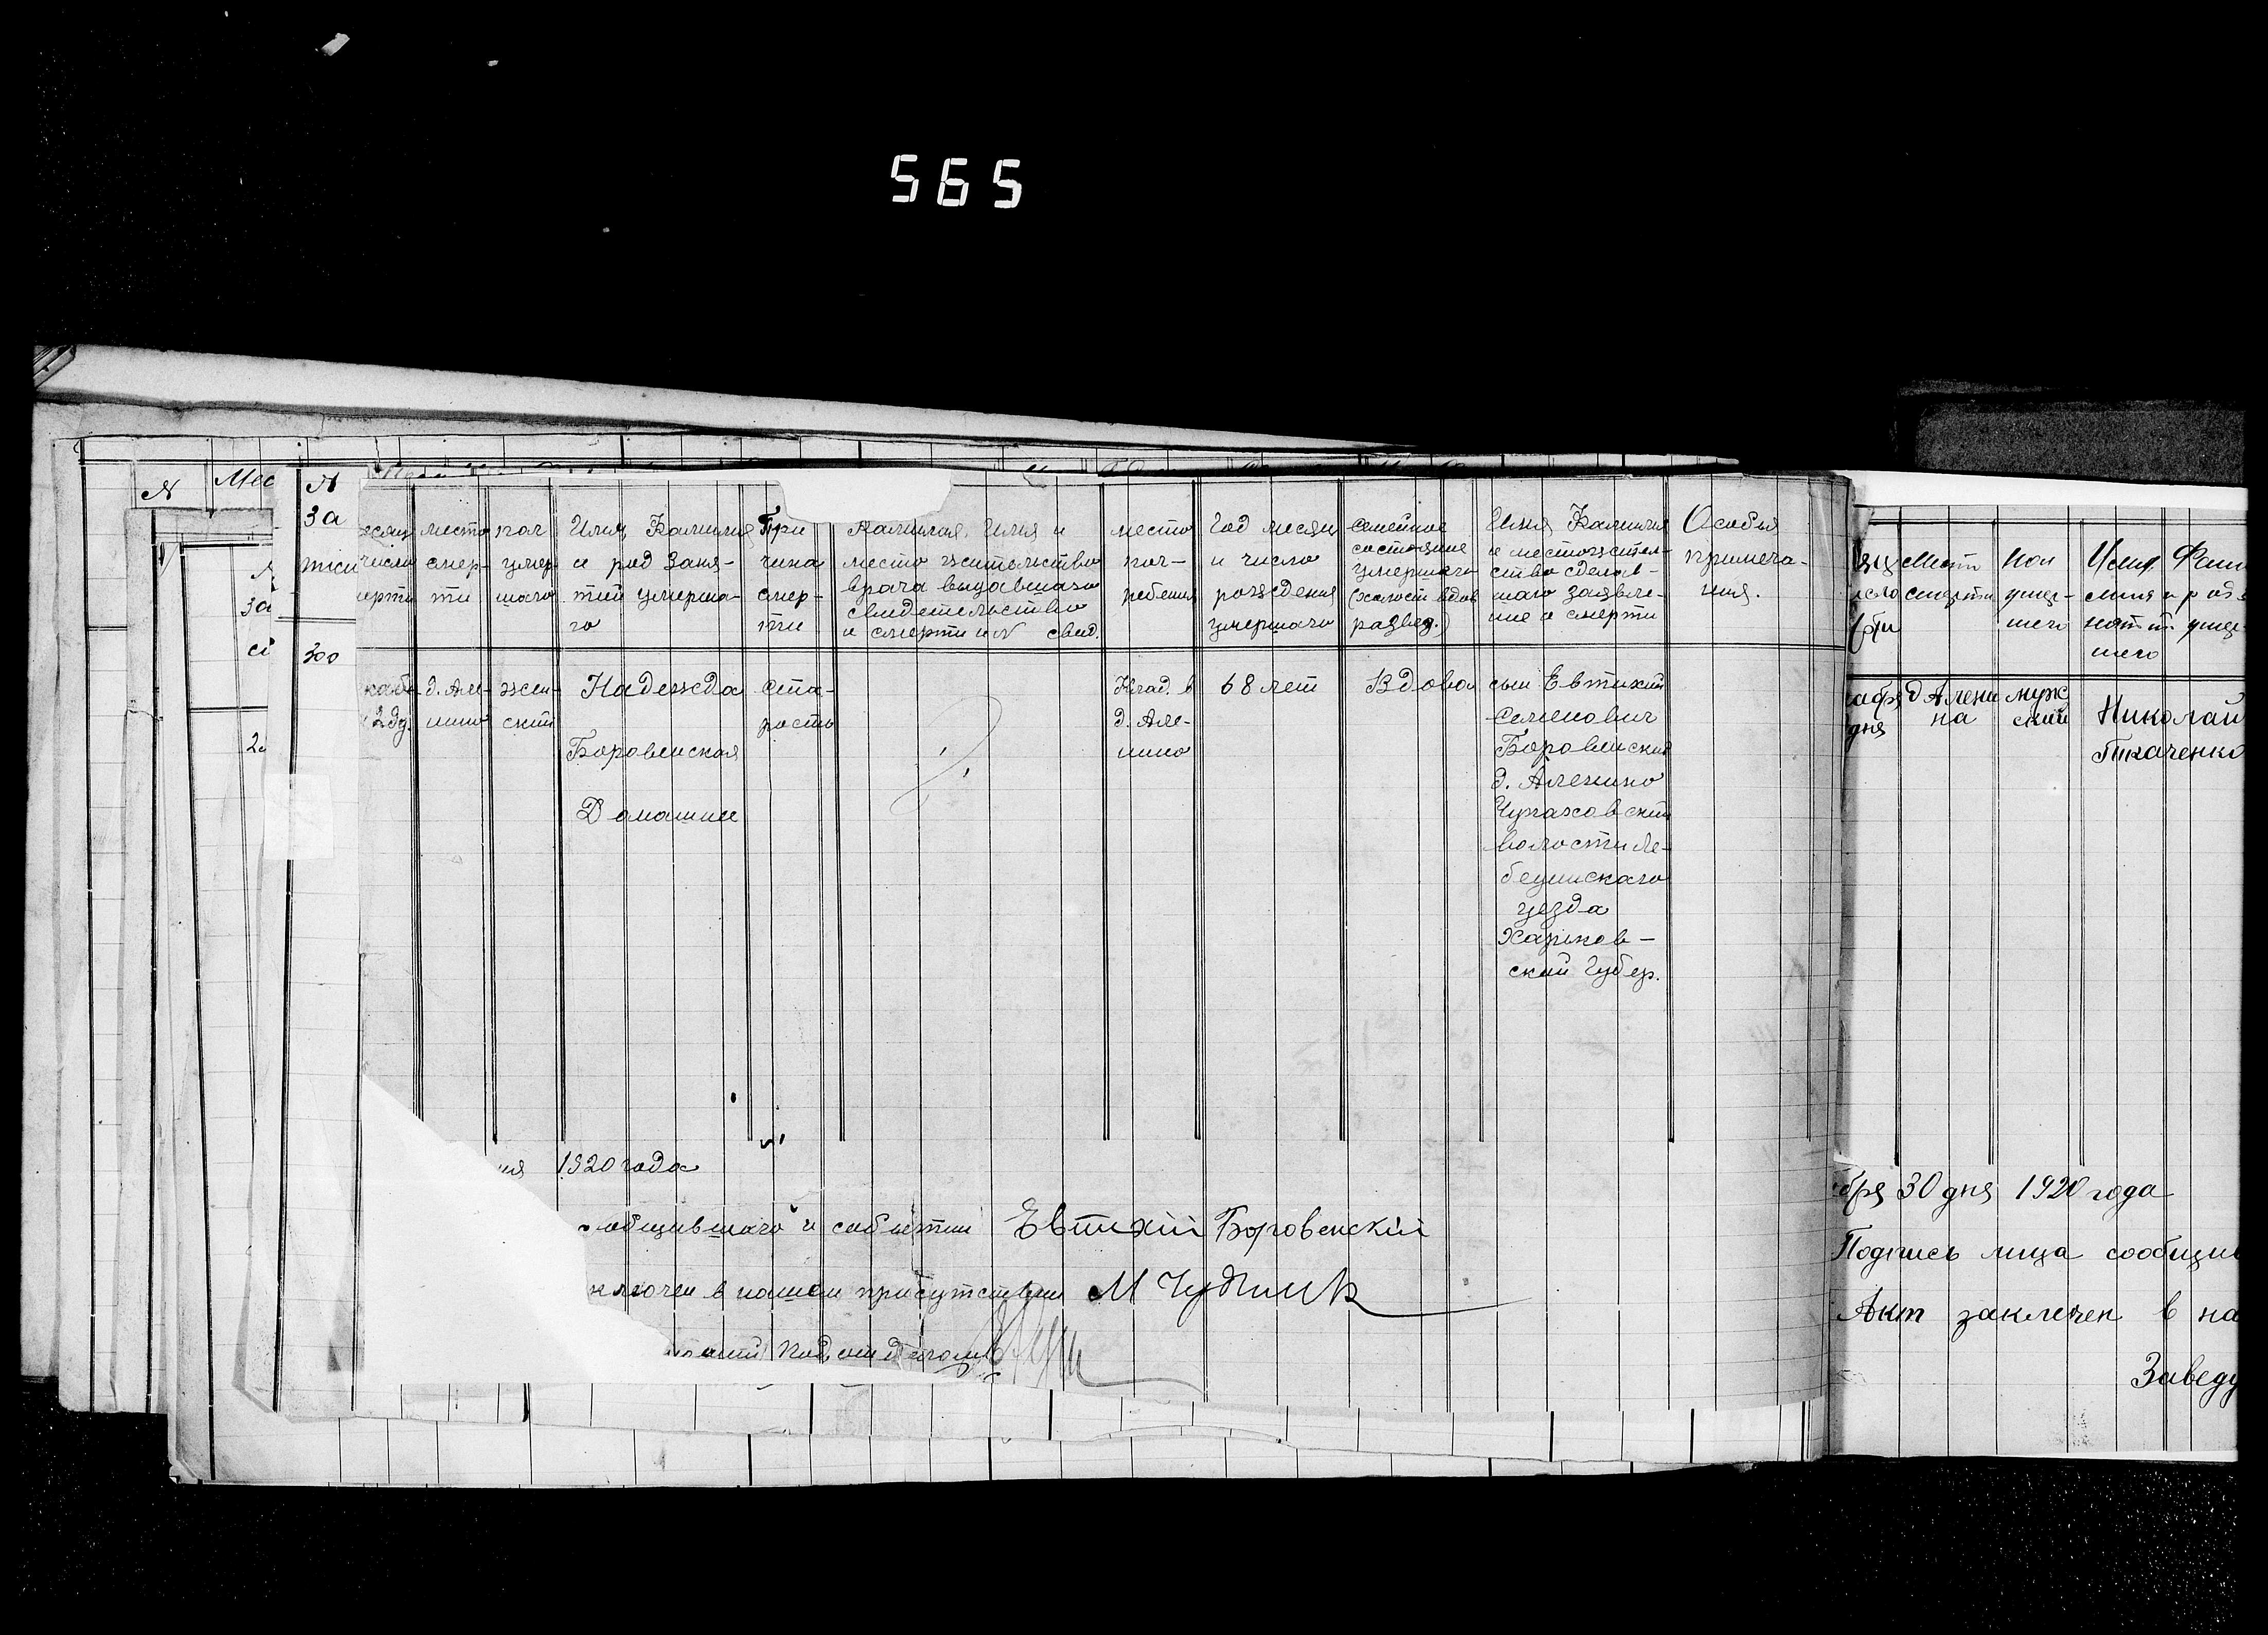 565
N
Мес
N
За
За
300
есяц
число
ерти
место
смер-
ти
пол
умер
шаго
Имя, Фамилия
и род заня-
тий умерша-
го
При
чина
смер-
ти
Фамилия, Имя и
место жительство
врача выдавшаго
свидетельство
о смерти и N свид.
место
пог-
ребения
Год месяц
и число
рождения
умершаго
семейное
состояние
умершаго
(холост вдов
развед.)
Имя Фамилия
и местожитель-
ство сделав-
шаго заявле-
ние о смерти
Особыя
примеча-
ния.
д. Але-
нино
жен-
ский
Надежда
Боровенская
Домашнее
Ста-
рость
Клад. в
д. Але-
нино
68 лет
Вдова
сын Евтихий
Семенович
Боровенский
д. Аленино
Чупаховский
волости Ле-
бединскаго
уезда
Харьков-
ский Губер.
ня 1920 года
общившаго о событии Евтихій Боровенскій
ключен в нашем присутствии М Чудник
смерти
пол
умер-
шего
Имя Фами
лия и род з
умер-
шего
дня
д Алени
на
муж
ский
Николай
Ткаченко
бря 30 дня 1920 года
Подпись лица сообщив
Акт заключен в на
Заведу